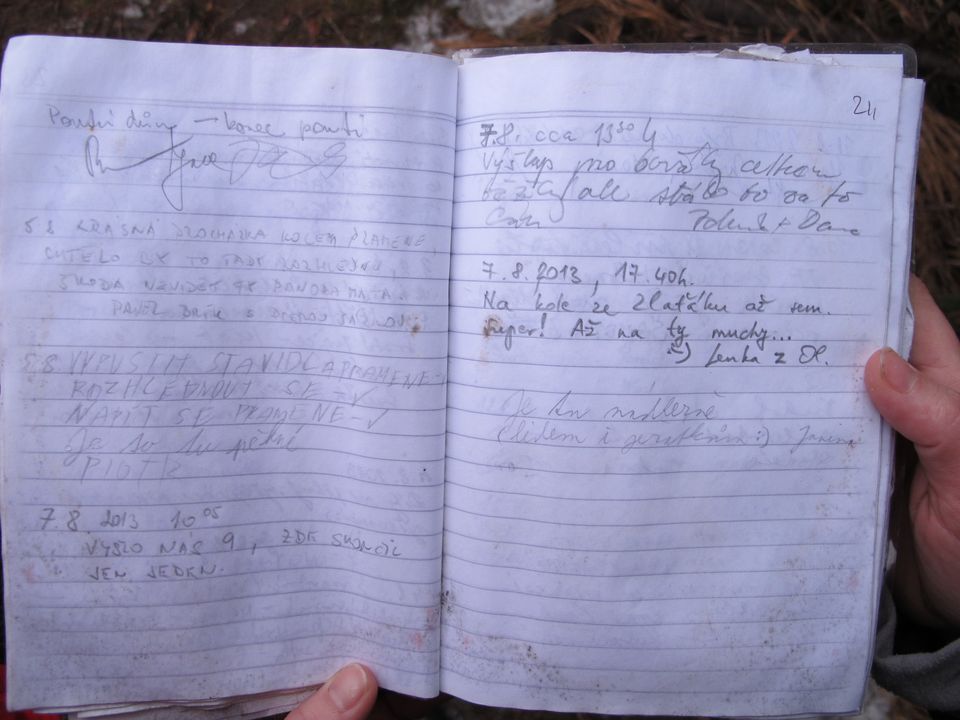 konec pouti
5.8. KRÁSNÁ PROCHÁZKA KOLEM PRAMENE,
CHTĚLO BY TO TADY ROZHLEDNU,
ŠKODA NEVIDĚT TA PANORAMATA.
PAVEL S
5.8. VYPUSTIT STAVIDLA PRAMENE-✓
ROZHLÉDNOUT SE-✓
NAPÍT SE PRAMENE-✓
Je to tu pěkné
PIOTR
7.8. 2013 10 05
VYŠLO NÁS 9, ZDE SKONČIL
JEN JEDEN.
24
7.8. cca 13 30 h
Výšlap pro boražky celkem
těžký ale stálo to za to
7.8.2013, 17.40h.
Na kole ze Zlaťáku až sem.
Super! Až na ty muchy...
Lenka z Ol.
Je tu nádherně
(lidem i zvířátkům :) Janina